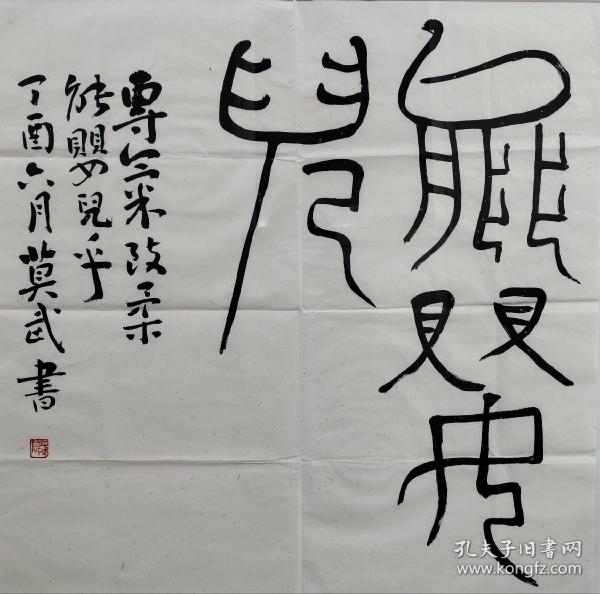 能嬰
兒
專氣致柔
能嬰兒乎
丁酉六月莫武書
孔夫子旧书网
www.kongfz.com